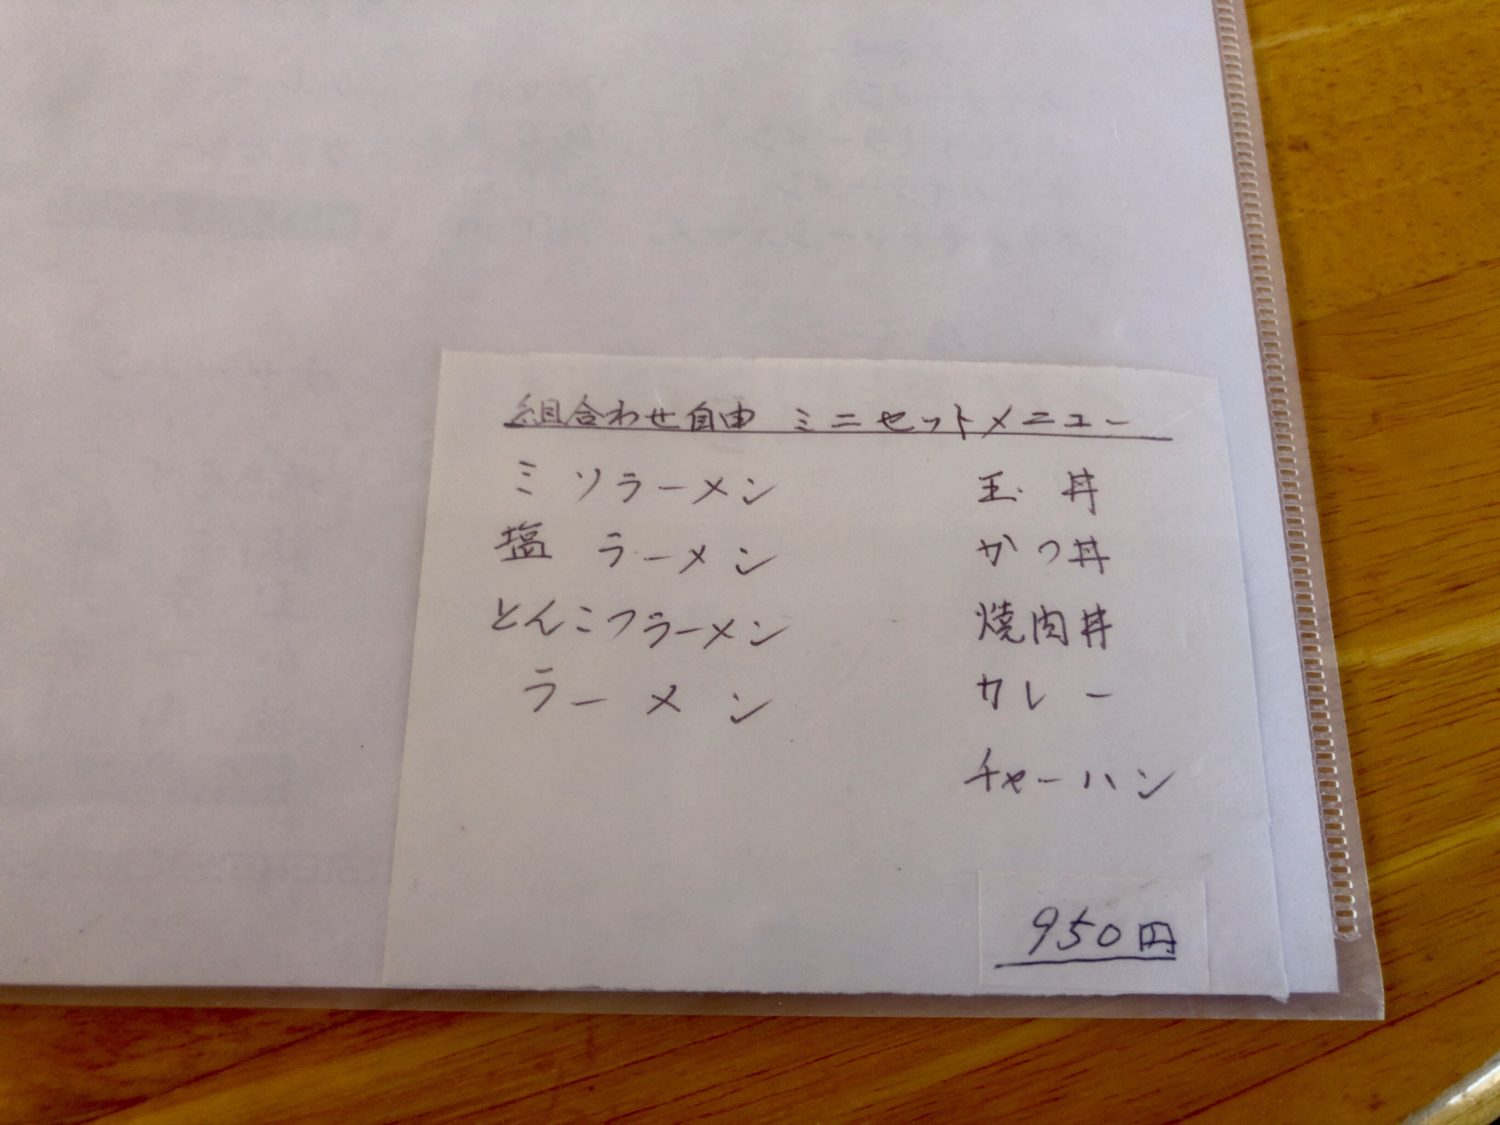 組合わせ自由 ミニセットメニュー
ミソラーメン 玉丼
塩ラーメン かつ丼
とんこつラーメン 焼肉丼
ラーメン カレー
チャーハン
950円